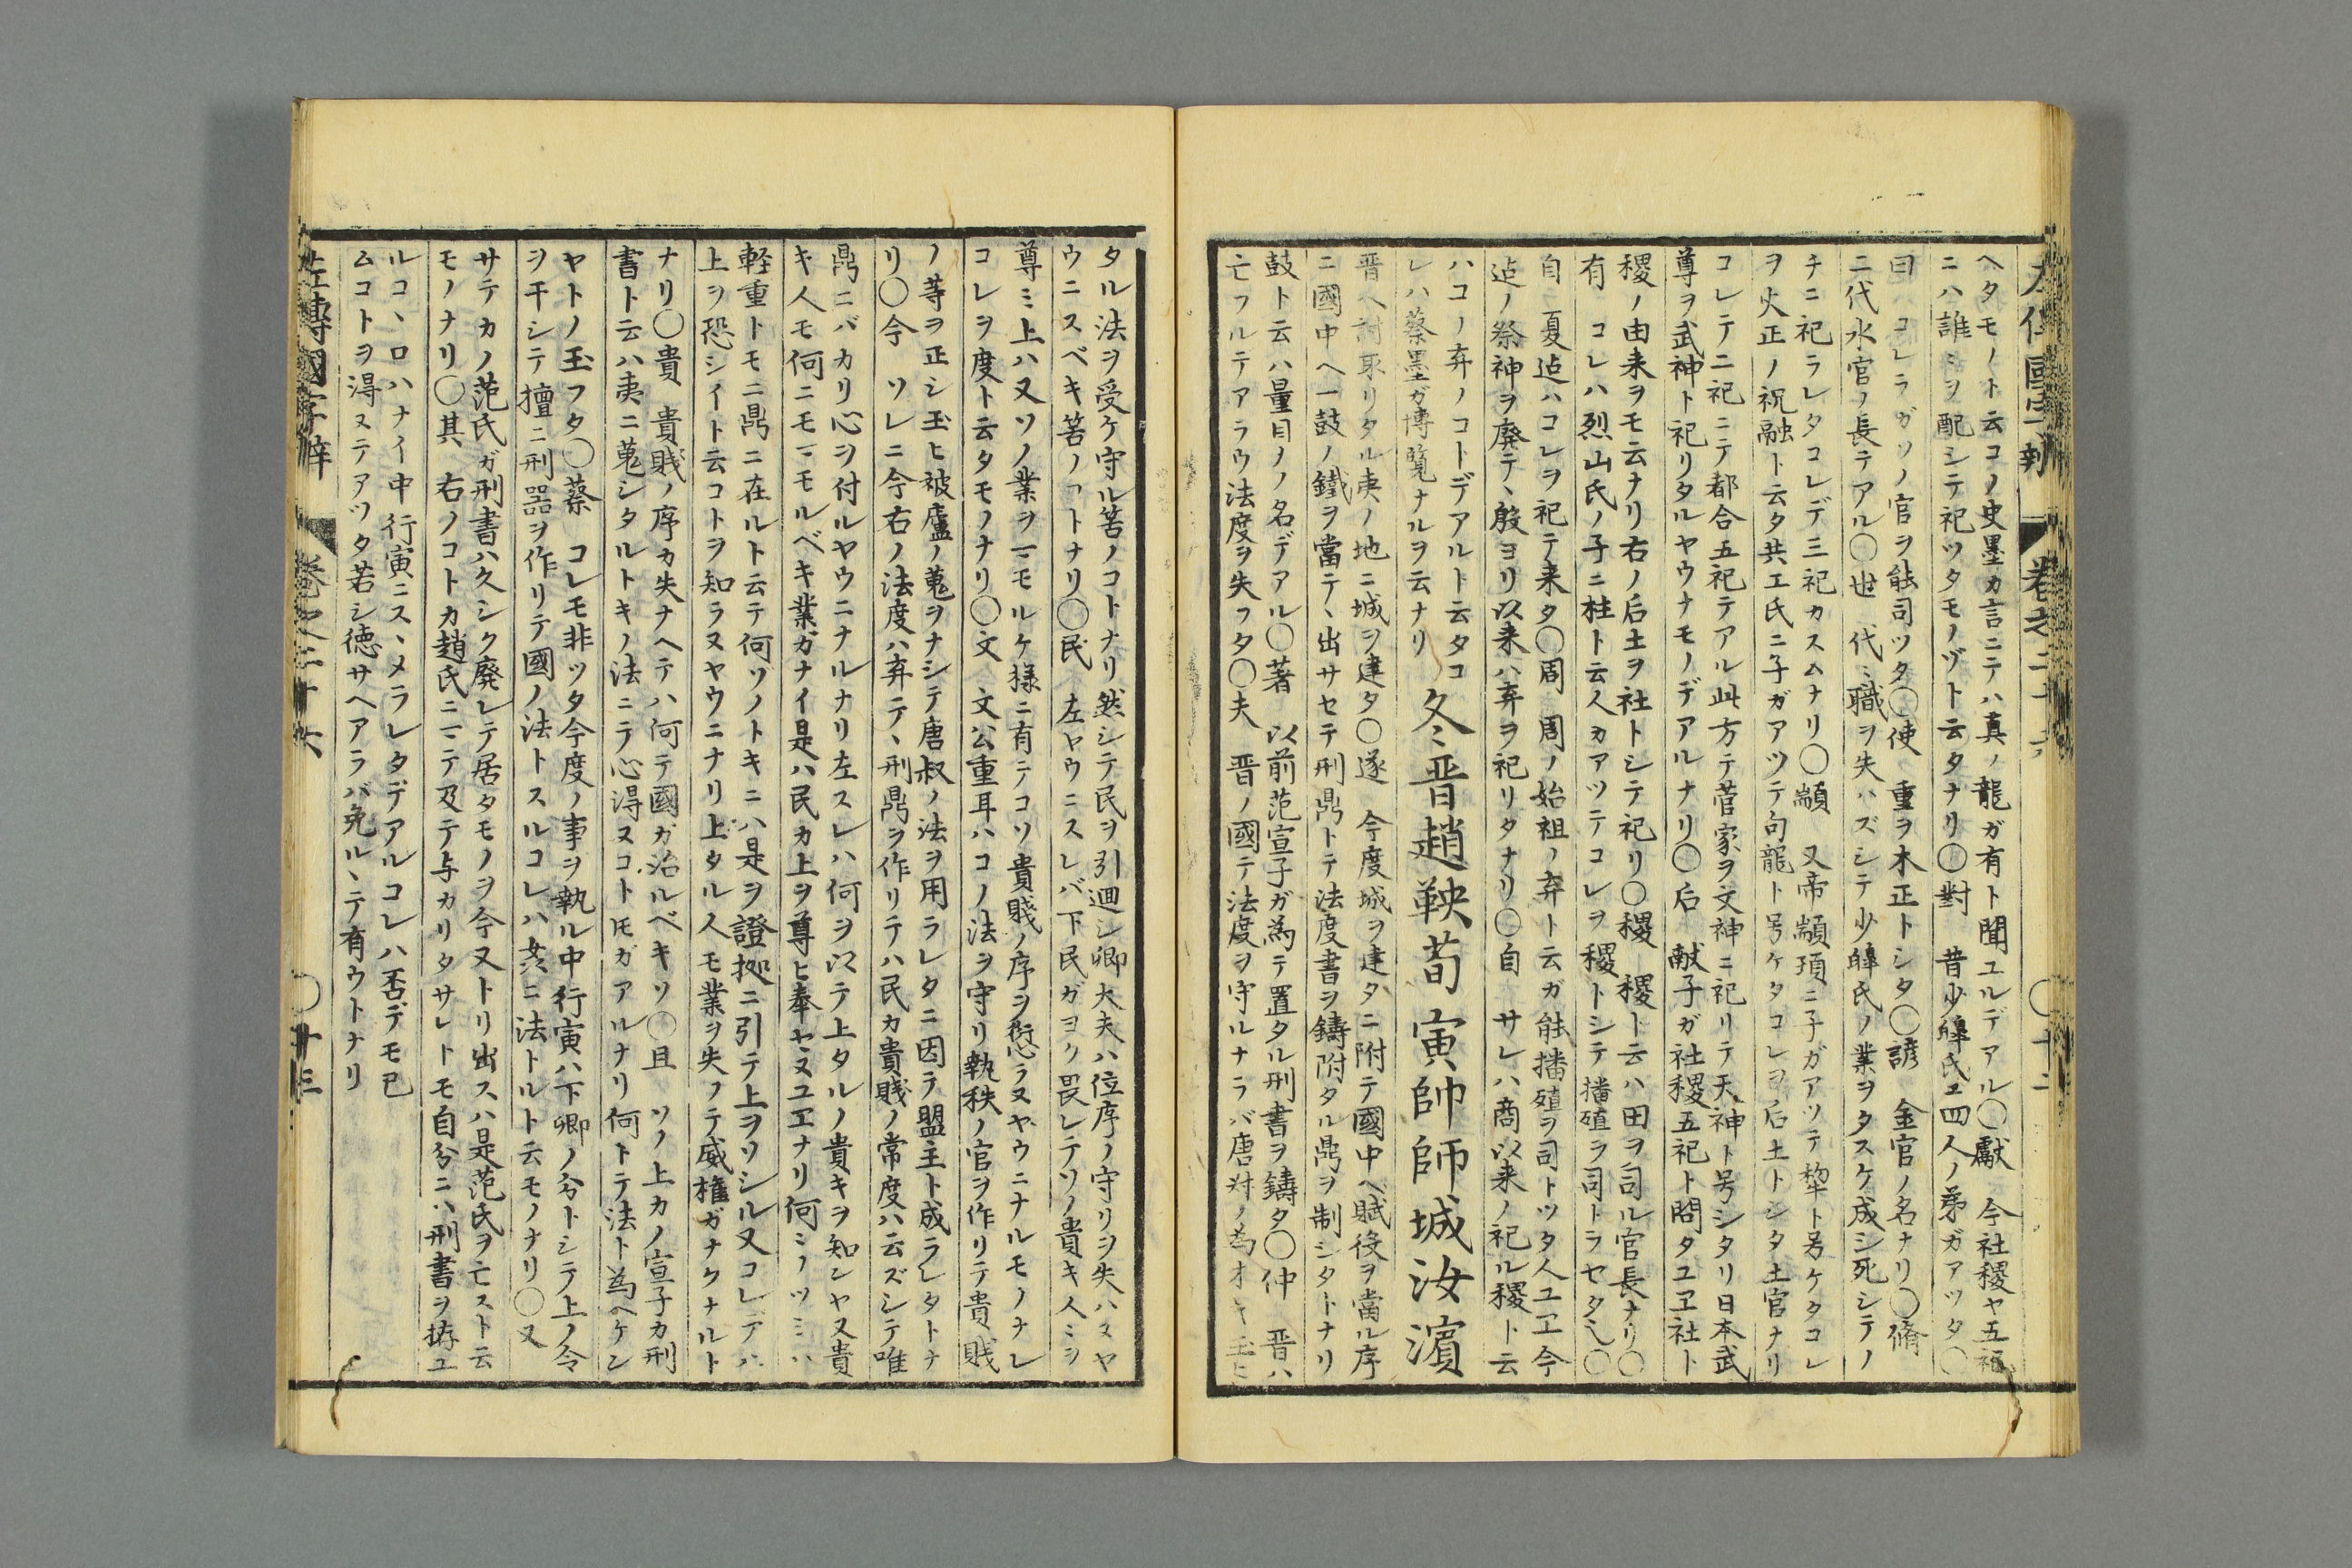 左傳國字辨 卷之二十六 〇十二
ヘタモノト云コノ史墨カ言ニテハ真ノ龍ガ有ト聞ユルデアル〇獻 今社稷ヤ五祀
ニハ誰ミヲ配シテ祀ツタモノヅト云タナリ〇對 昔少皥氏ヱ四人ノ弟ガアツタ〇
曰ハコレラガソノ官ヲ能司ツタ〇使 重ヲ木正トシタ〇該 金官ノ名ナリ〇脩
二代水官ノ長テアル〇世 代ミ職ヲ失ハズシテ少皥氏ノ業ヲタスケ成シ死シテノ
チニ祀ラレタコレデ三祀カスムナリ〇顓 又帝顓頊ニ子ガアツテ犂ト号ケタコレ
ヲ火正ノ祝融ト云タ共工氏ニ子ガアツテ句龍ト号ケタコレヲ后土トシタ土官ナリ
コレテニ祀ニテ都合五祀テアル此方テ菅家ヲ文神ニ祀リテ天神ト号シタリ日本武
尊ヲ武神ト祀リタルヤウナモノデアルナリ〇后 献子ガ社稷五祀ト問タユヱ社ト
稷ノ由来ヲモ云ナリ右ノ后土ヲ社トシテ祀リ〇稷 稷ト云ハ田ヲ司ル官長ナリ〇
有 コレハ烈山氏ノ子ニ柱ト云人カアツテコレヲ稷トシテ播殖ヲ司トラセタ〇
自 夏迠ハコレヲ祀テ来タ〇周 周ノ始祖ノ弃ト云ガ能播殖ヲ司トツタ人ユヱ今
迠ノ祭神ヲ廃テヽ殷ヨリ以来ハ弃ヲ祀リタナリ〇自 サレハ商以来ノ祀ル稷ト云
ハコノ弃ノコトデアルト云タコ
レハ蔡墨ガ博覽ナルヲ云ナリ
冬晋趙鞅荀寅帥師城汝濱
晋ヘ討取リタル夷ノ地ニ城ヲ建タ〇遂 今度城ヲ建タニ附テ國中ヘ賦役ヲ當ル序
ニ國中ヘ一鼓ノ鐵ヲ當テヽ出サセテ刑鼎トテ法度書ヲ鑄附タル鼎ヲ制シタトナリ
鼓ト云ハ量目ノノ名デアル〇著 以前范宣子ガ為テ置タル刑書ヲ鑄タ〇仲 晋ハ
亡フルテアラウ法度ヲ失フタ〇夫 晋ノ國テ法度ヲ守ルナラバ唐叔ノ為オキ玉ヒ
タル法ヲ受ケ守ル筈ノコトナリ然シテ民ヲ引廻シ卿大夫ハ位序ノ守リヲ失ハヌヤ
ウニスベキ筈ノヿトナリ〇民 左ヤウニスレバ下民ガヨク畏レテソノ貴キ人ミヲ
尊ミ上ハ又ソノ業ヲ一モルケ様ニ有テコソ貴賤ノ序ヲ愆ラヌヤウニナルモノナレ
コレヲ度ト云タモノナリ〇文 文公重耳ハコノ法ヲ守リ執秩ノ官ヲ作リテ貴賤
ノ等ヲ正シ玉ヒ被廬ノ蒐ヲナシテ唐叔ノ法ヲ用ラレタニ因テ盟主ト成ラレタトナ
リ〇今 ソレニ今右ノ法度ハ弃テヽ刑鼎ヲ作リテハ民カ貴賤ノ常度ハ云ズシテ唯
鼎ニバカリ心ヲ付ルヤウニナルナリ左スレハ何ヲ以テ上タルノ貴キヲ知ンヤ又貴
キ人モ何ニモ一モルベキ業ガナイ是ハ民カ上ヲ尊ヒ奉ヤヌユヱナリ何ミノツミハ
軽重トモニ鼎ニ在ルト云テ何ゾノトキニハ是ヲ證拠ニ引テ上ヲソシル又コレデハ
上ヲ恐シイト云コトヲ知ラヌヤウニナリ上タル人モ業ヲ失フテ威権ガナクナルト
ナリ〇貴 貴賤ノ序カ失ナヘテハ何テ國ガ治ルベキソ〇且 ソノ上カノ宣子カ刑
書ト云ハ夷ニ蒐シタルトキノ法ニテ心得ヌコトモガアルナリ何トテ法ト為ヘケン
ヤトノ玉フタ〇蔡 コレモ非ツタ今度ノ事ヲ執ル中行寅ハ下卿ノ分トシテ上ノ令
ヲ干シテ擅ニ刑器ヲ作リテ國ノ法トスルコレハ姦ニ法トルト云モノナリ〇又
サテカノ范氏ガ刑書ハ久シク廃レテ居タモノヲ今又トリ出スハ是范氏ヲ亡スト云
モノナリ〇其 右ノコトカ趙氏ニ一テ及テ与カリタサレトモ自分ニハ刑書ヲ拵ユ
ルコヽロハナイ中 行寅ニスヽメラレタデアルコレハ否デモ已
ムコトヲ得ヌテアツタ若シ徳サヘアラバ免ルヽテ有ウトナリ
左傳國字辨 卷之二十六 〇十三